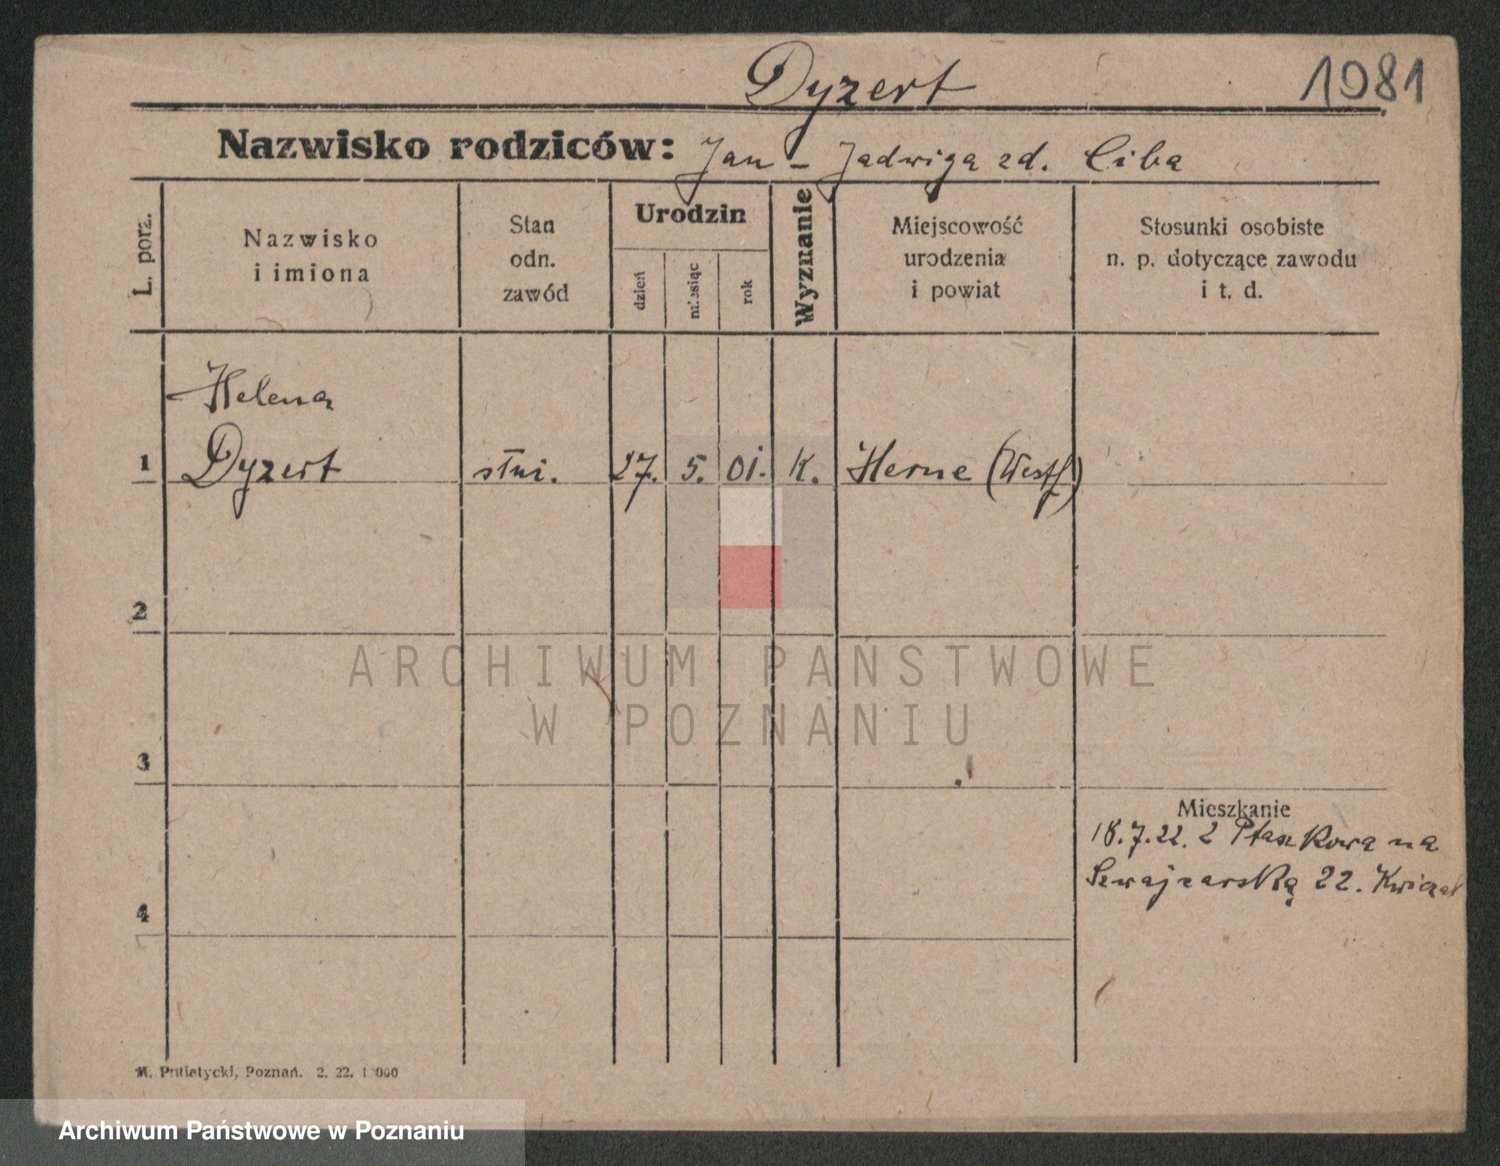 Dyzert 1981
Nazwisko rodziców: Jan - Jadwiga zd. Ciba
L. porz.
Nazwisko
i imiona
Stan
odn.
zawód
Urodzin
dzień
miesiąc
rok
Wyznanie
Miejscowość
urodzenia
i powiat
Stosunki osobiste
n. p. dotyczące zawodu
i t. d.
Helena
1 Dyzert służ. 27. 5. 01. K. Herne (Westf)
2
3
4
Mieszkanie
18.7.22. z Ptaszkowa na
Szwajcarską 22.
M. Putiatycki, Poznań. 2. 22.
ARCHIWUM PAŃSTWOWE
W POZNANIU
Archiwum Państwowe w Poznaniu